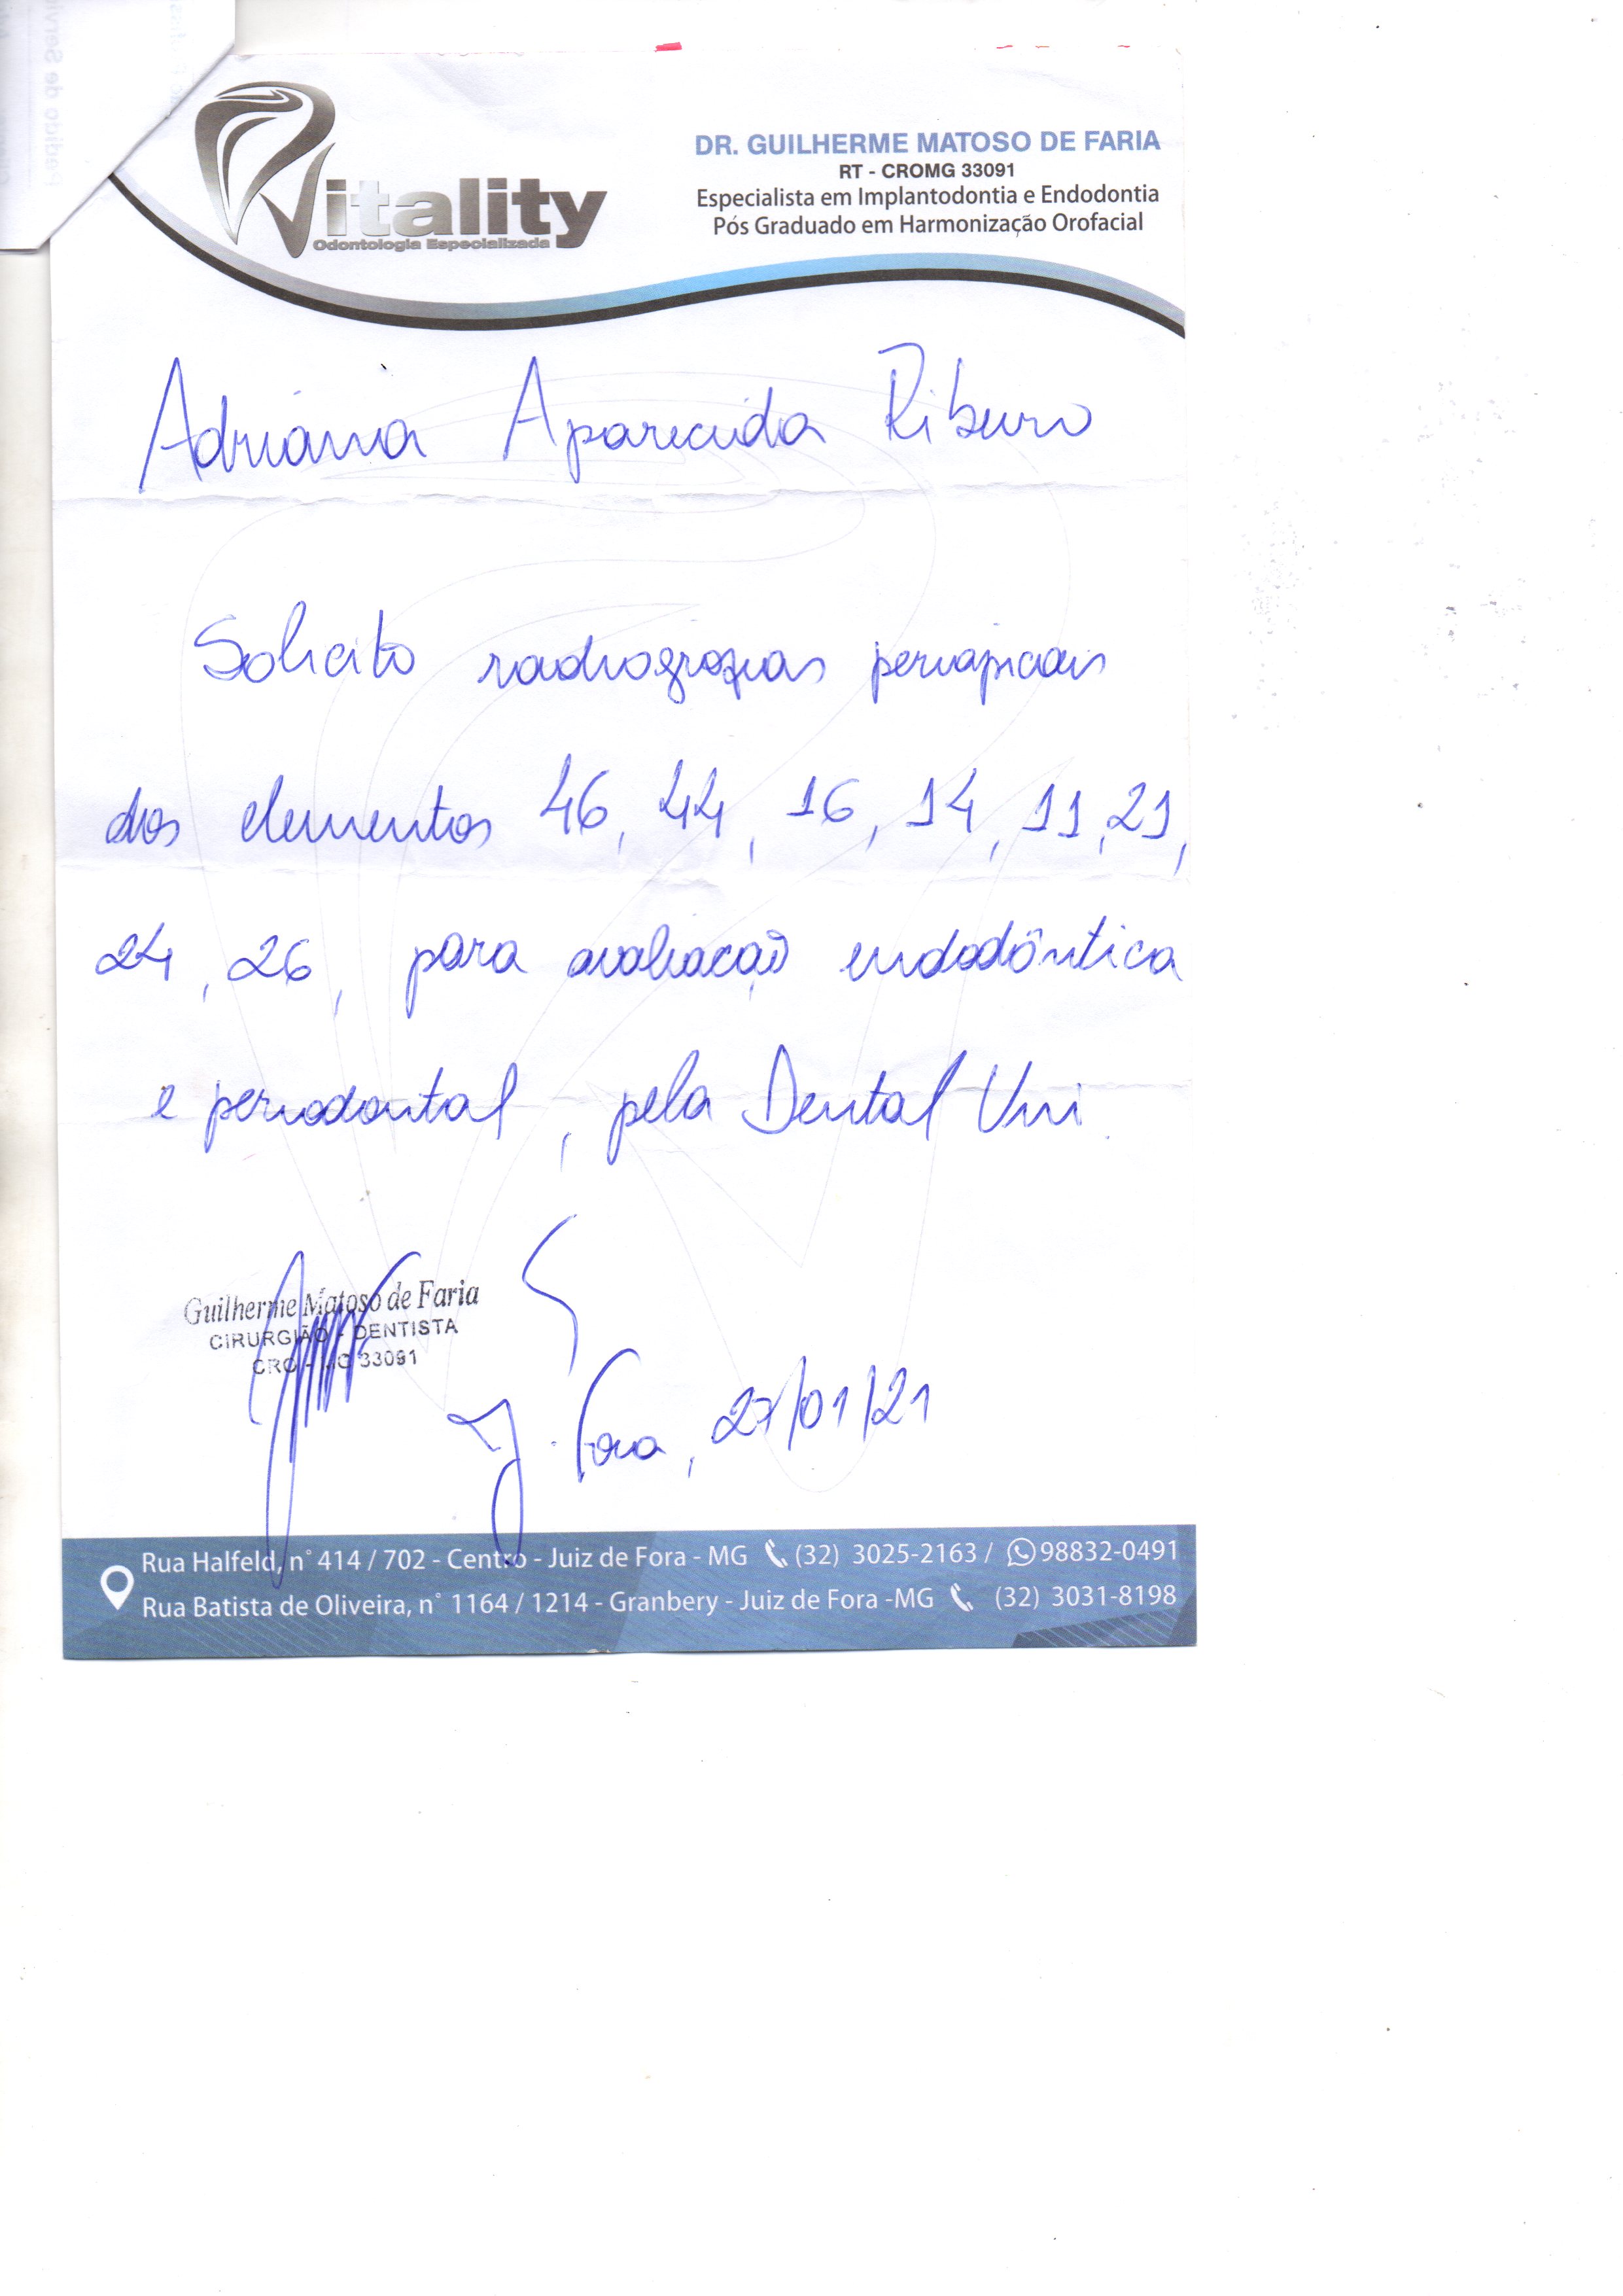 Vitality
Odontologia Especializada
DR. GUILHERME MATOSO DE FARIA
RT - CROMG 33091
Especialista em Implantodontia e Endodontia
Pós Graduado em Harmonização Orofacial
Adriana Aparecida Ribeiro
Solicito radiografias periapicais
dos elementos 46, 44, 16, 14, 11, 21,
24, 26, para avaliação endodôntica
e periodontal, pela Dental Uni.
Guilherme Matoso de Faria
CIRURGIÃO - DENTISTA
CRO - MG 33091
J. Fora, 27/01/21
Rua Halfeld, n° 414 / 702 - Centro - Juiz de Fora - MG (32) 3025-2163 / 98832-0491
Rua Batista de Oliveira, n° 1164 / 1214 - Granbery - Juiz de Fora -MG (32) 3031-8198